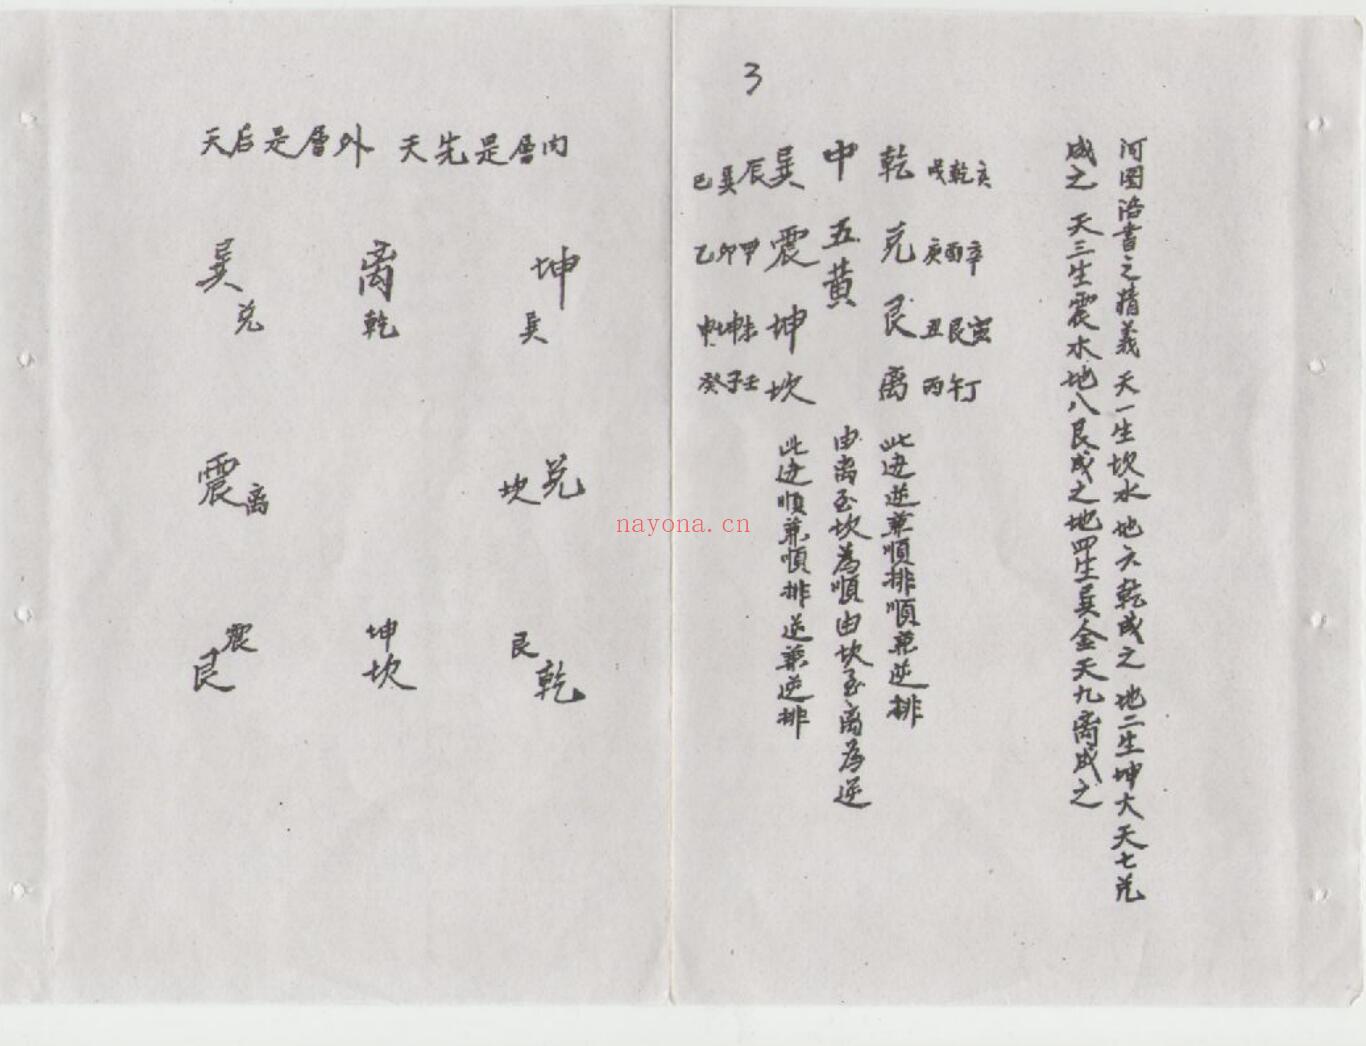 3
河图洛書之精義 天一生坎水 地六乾成之 地二生坤大天七兑
成之 天三生震水地八艮成之地四生巽金天九离成之
戌乾亥
庚酉辛
丑艮寅
丙午丁
乾兑艮离
此边逆兼順排順兼逆排
中五黄
由离至坎為順由坎至离為逆
巽震坤坎
此边順兼順排逆兼逆排
巳巽辰
乙卯甲
申坤未
癸子壬
天后是層外 天先是層内
巽 离 坤
兑 乾 巽
震离 坎兑
震 坤 艮
艮 坎 乾
nayona.cn